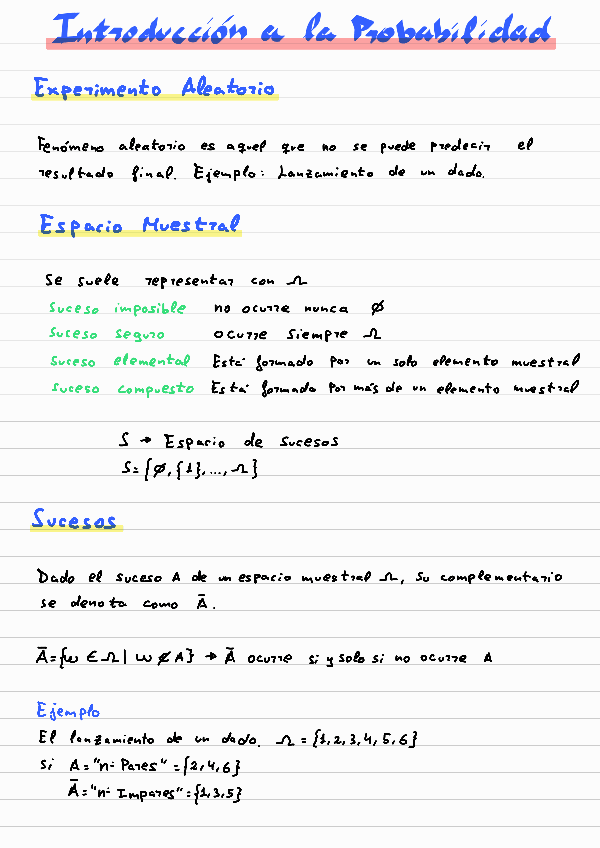 Introducción a la Probabilidad
Experimento Aleatorio
Fenómeno aleatorio es aquel que no se puede predecir el
resultado final. Ejemplo: Lanzamiento de un dado.
Espacio Muestral
Se suele representar con Ω
Suceso imposible no ocurre nunca ∅
Suceso seguro ocurre siempre Ω
Suceso elemental Está formado por un solo elemento muestral
Suceso compuesto Está formado por más de un elemento muestral
S → Espacio de sucesos
S={∅,{1},...,Ω}
Sucesos
Dado el suceso A de un espacio muestral Ω, su complementario
se denota como Ā.
Ā={ω ∈ Ω | ω ∉ A} → Ā ocurre si y solo si no ocurre A
Ejemplo
El lanzamiento de un dado. Ω = {1,2,3,4,5,6}
si A="nº Pares"={2,4,6}
Ā="nº Impares"={1,3,5}